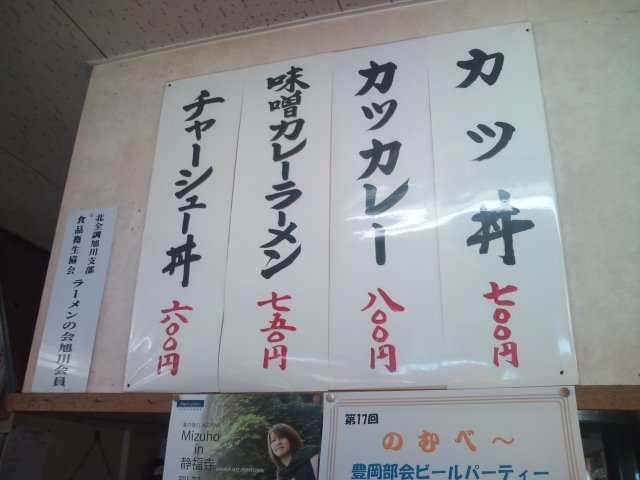 カツ丼 七〇〇円
カツカレー 八〇〇円
味噌カレーラーメン 七五〇円
チャーシュー丼 六〇〇円
北全調旭川支部
食品衛生協会 ラーメンの会旭川会員
Mizuho
in
静福寺
第17回
のむべ～
豊岡部会ビールパーティー